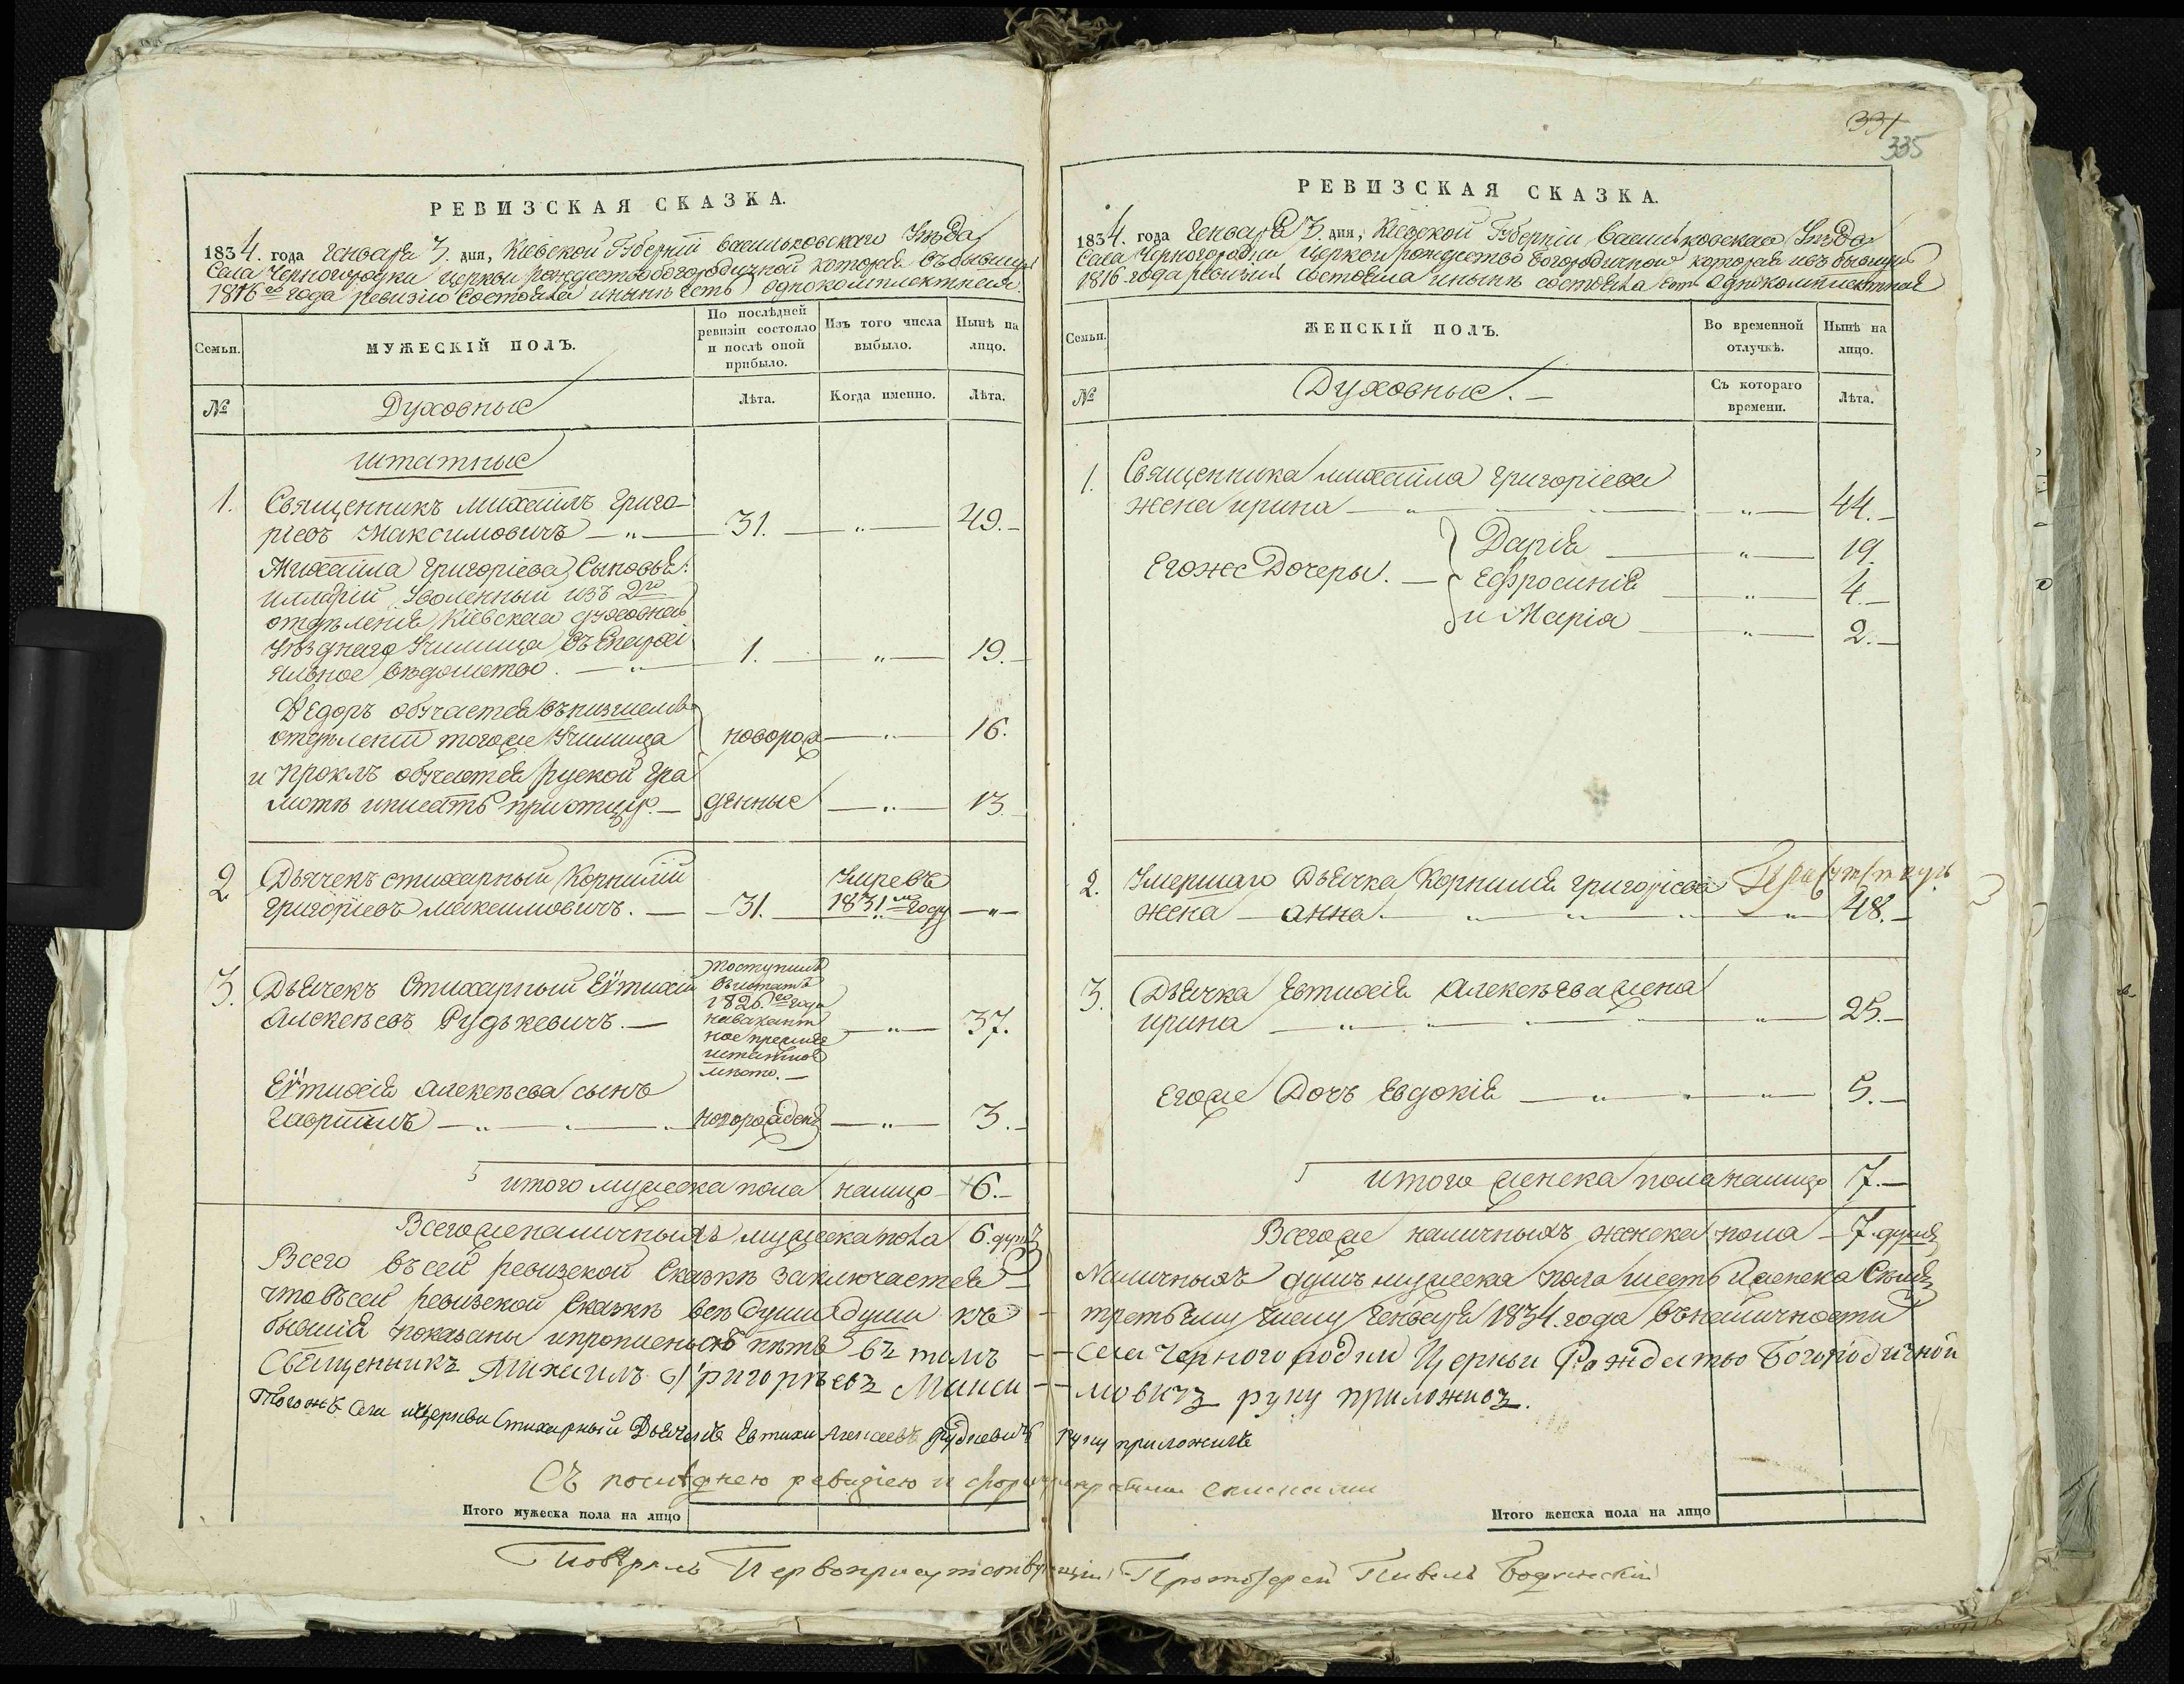 331
335
РЕВИЗСКАЯ СКАЗКА.
1834. года Генваря 3. дня, Кіевской Губерніи Васильковскаго Уѣзда
Села Черногородки церкви рождество богородичной которая въ бывшую
1816го года ревизію Состояла и нынѣ есть однокомплектная.
Семьи.
МУЖЕСКІЙ ПОЛЪ.
По послѣдней ревизіи состояло и послѣ оной прибыло.
Изъ того числа выбыло.
Нынѣ на лицо.
№
Духовные
Лѣта.
Когда именно.
Лѣта.
штатные
1. Священникъ Михаилъ Григо-
ріевъ Максимовичъ — 31. — 49.
Михаила Григоріева Сыновья:
Илларій Уволенный изъ 2го
отдѣленія Кіевскаго духовнаго
Уѣзднаго Училища въ Епархі
яльное вѣдомство. — 1. — 19.
Ѳедоръ обучается въ низшемъ
отдѣленіи тогоже Училища новорож — 16.
и Проклъ обучается руской гра
мотѣ и писать при отцѣ. — денные — 13.
2 Дьячекъ стихарный Корнилій Умре въ
Григоріевъ Максимовичъ. — 31. 1831м году — „ —
3. Дьячекъ Стихарный Евтихій
Алексѣевъ Рудькевичъ. — 37.
поступилъ
въ штатъ
1826го года
на вакант
ное прежде
штатное
мѣсто. —
Евтихія Алексѣева сынъ
Гавріилъ — новорожденъ — 3.
итого мужеска пола на лицо 6.
Всегоже наличныхъ мужеска пола 6. душъ
Всего въ сей ревизской Сказкѣ заключается
что въ сей ревизской Сказкѣ всѣ души къ
бывшія показаны и прописныхъ нѣтъ въ томъ
Священникъ Михаилъ Григорьевъ Макси
Тогожъ Села и церкви Стихарный Дьячекъ Евтихи Алексеевъ Рудкевичъ
Итого мужеска пола на лицо
РЕВИЗСКАЯ СКАЗКА.
1834. года Генваря 3. дня, Кіевской Губерніи Васильковскаго Уѣзда
Села Черногородки церкви рождество богородичной которая въ бывшую
1816 года ревизію состояла и нынѣ однокомплектная
Семьи.
ЖЕНСКІЙ ПОЛЪ.
Во временной отлучкѣ.
Нынѣ на лицо.
№
Духовные. —
Съ котораго времени.
Лѣта.
1. Священника Михаила Григоріева
жена Ирина — 44.
Егоже Дочеры. — Дарія — 19.
Ефросинія — 4.
и Марія — 2.
2. Умершаго Дьячка Корнилія Григоріева
жена — Анна. — 48.
3. Дьячка Евтихія Алексѣева жена
Ирина — 25.
Егоже Дочъ Евдокія — 5.
итого женска пола на лицо 7.
Всегоже наличныхъ женска пола — 7. душъ
Наличныхъ душъ мужеска пола шесть и женска Семь
третьему числу Генваря 1834. года въ наличности
села Черногородки Церкви Рождество Богородичной
мовичъ руку приложилъ.
руку приложилъ
Съ послѣднею ревизіею и формулярными списками
Итого женска пола на лицо
Повѣрялъ Первоприсутствующій Протоіерей Павелъ